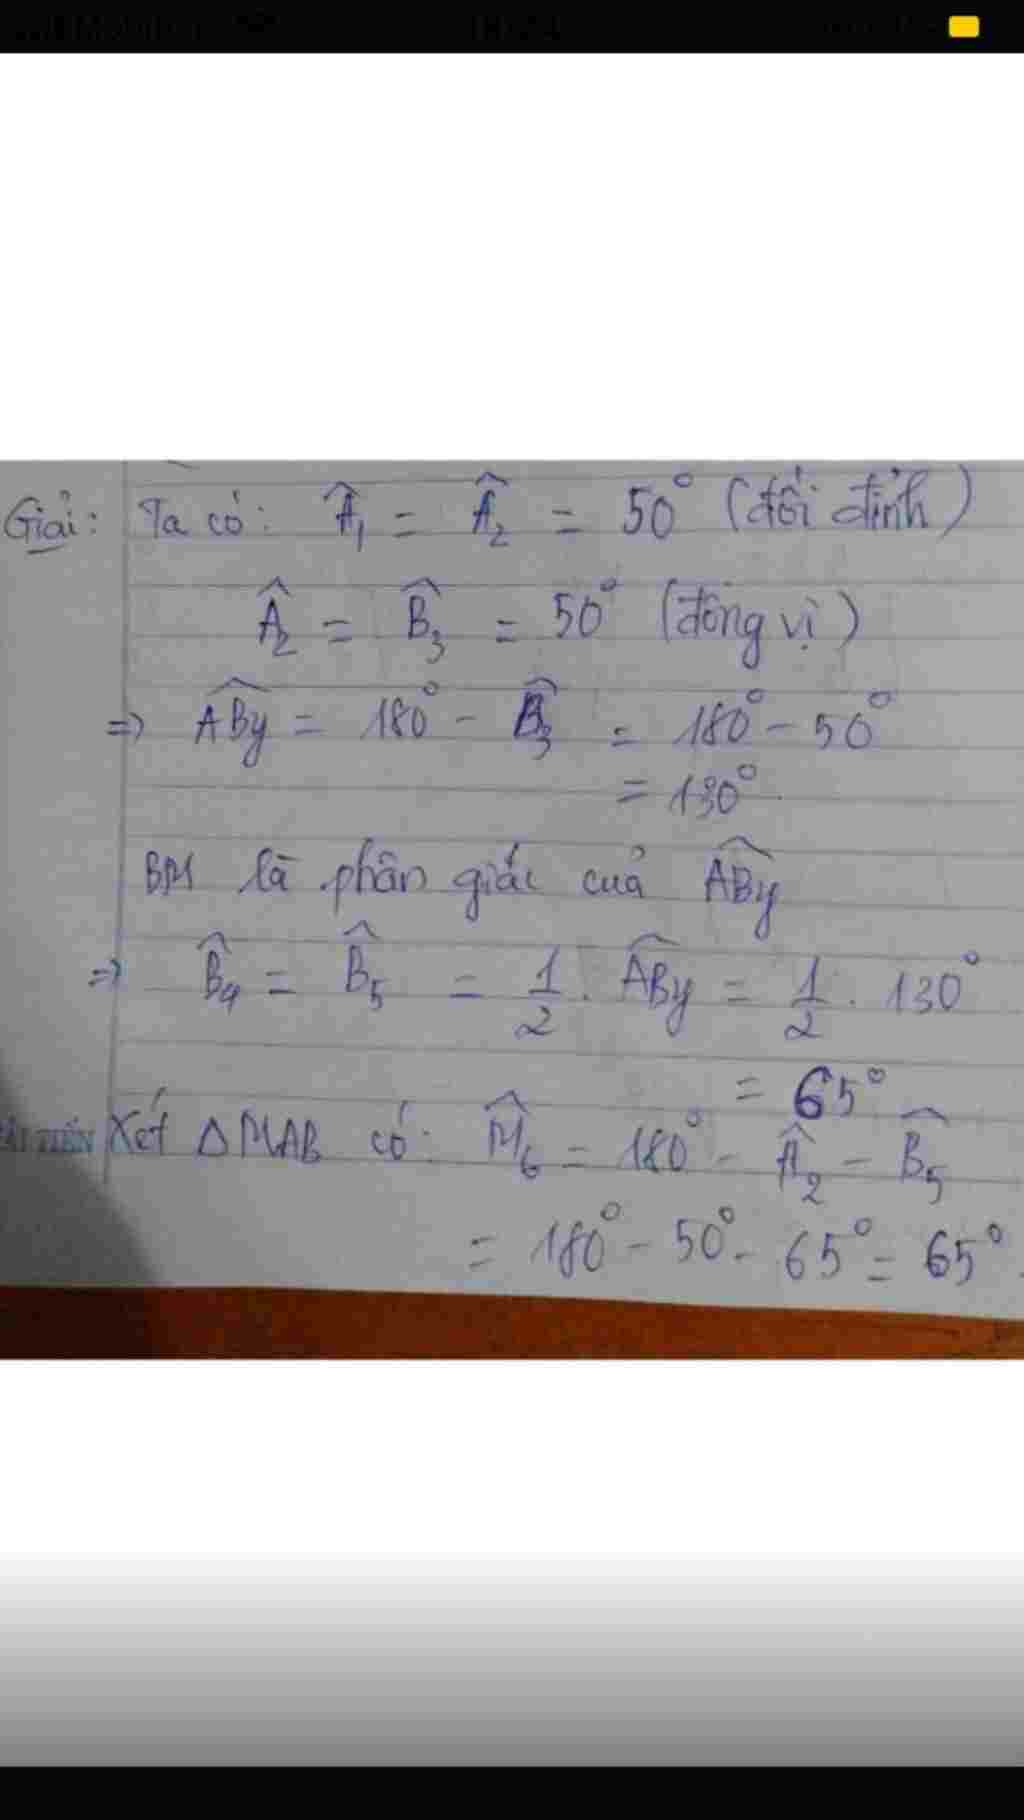 Giải: Ta có: Â₁ = Â₂ = 50° (đối đỉnh)
Â₂ = B̂₃ = 50° (đồng vị)
=> ABy^ = 180° - B̂₃ = 180° - 50°
= 130°.
BM là phân giác của ABy^
=> B̂₄ = B̂₅ = 1/2 . ABy^ = 1/2 . 130°
= 65°
Xét ΔMAB có: M̂₆ = 180° - Â₂ - B̂₅
= 180° - 50° - 65° = 65°.